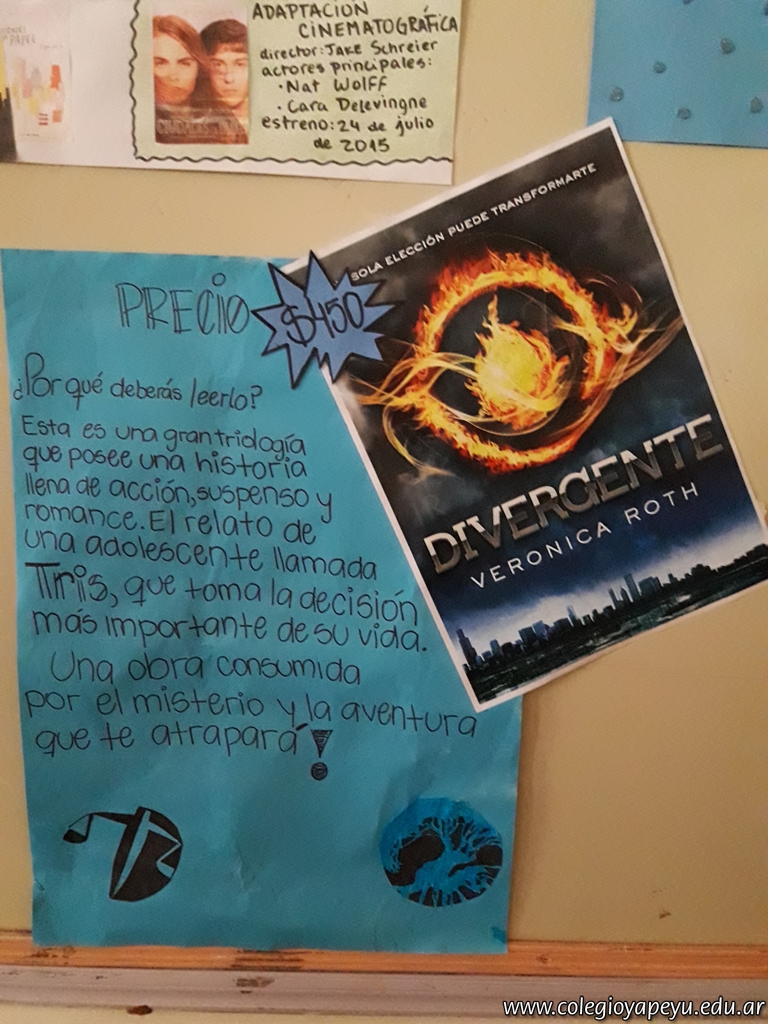 ADAPTACION
CINEMATOGRÁFICA
director: Jake Schreier
actores principales:
• Nat Wolff
• Cara Delevingne
estreno: 24 de julio
de 2015
SOLA ELECCIÓN PUEDE TRANSFORMARTE
DIVERGENTE
VERONICA ROTH
PRECIO $450
¿Por qué deberás leerlo?
Esta es una gran tridología
que posee una historia
llena de acción, suspenso y
romance. El relato de
una adolescente llamada
Tris, que toma la decisión
más importante de su vida.
Una obra consumida
por el misterio y la aventura
que te atrapará!
www.colegioyapeyu.edu.ar